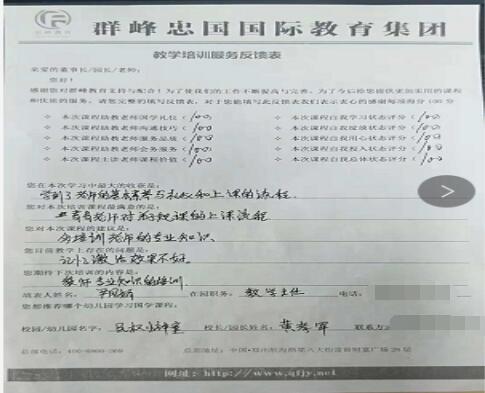 群峰忠国国际教育集团
教学培训服务反馈表
亲爱的董事长/园长/老师:
您好!
感谢您对群峰教育支持与配合!为了使我们的工作不断提高与完善,为了今后给您提供更加实用的课程
和优质的服务,请您完整的填写反馈表,对于您能填写此反馈表我们表示衷心的感谢每项满分100分
本次课程助教老师国学礼仪(100 本次课程自我学习状态评分(100
本次课程助教老师沟通技巧(100 本次课程自我成绩状态评分(100
本次课程助教老师服务品质(100 本次课程自我用心状态评分(100
本次课程助教老师会务服务(100 本次课程自我投入状态评分(100
本次课程主讲老师课程价值(100 本次课程自我总体状态评分(100
您在本次学习中最大的收获是:
学到了老师的基本素养与礼仪和上课的流程
您对本次培训课程最满意的是:
老师对弟子规课的上课流程
您对本次课程的建议是:
多培训老师的专业知识.
您目前教学上存在的问题是:
记忆激活效果不好.
您期待下次培训的内容是:
教师专业知识的培训.
填表人姓名: 在园职务: 教学主任 电话:
您想推荐哪个幼儿园学习国学课程:
校园/幼儿园名字: 校长/园长姓名: 黄 军 联系方
总部电话: 400-6900-369 总部地址: 中国·郑州
网址: http://www.qfjy.net